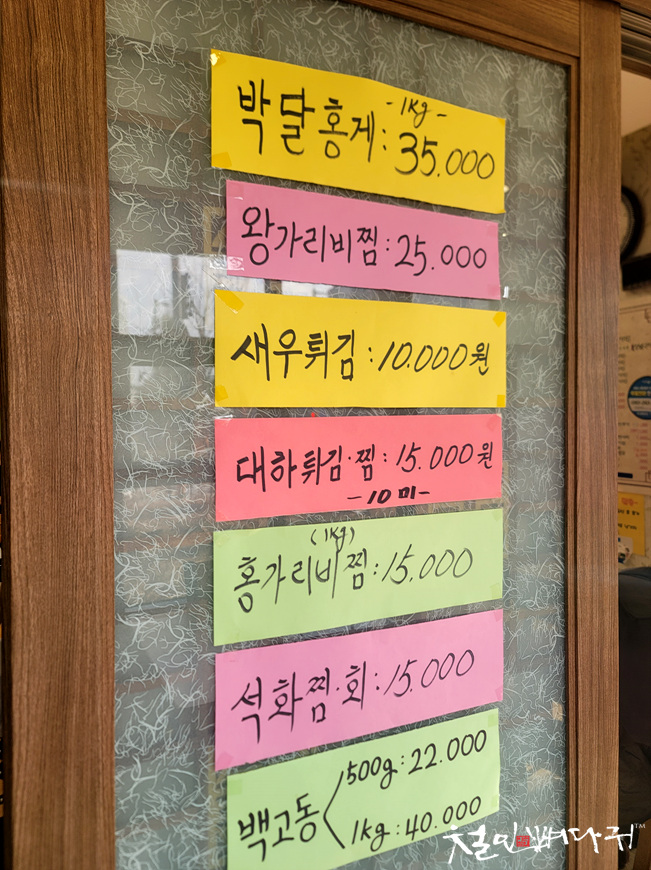 -1kg-
박달홍게:35.000
왕가리비찜:25.000
새우튀김:10.000원
대하튀김·찜:15.000원
-10미-
(1kg)
홍가리비찜:15.000
석화찜·회:15.000
백고동
500g:22.000
1kg:40.000